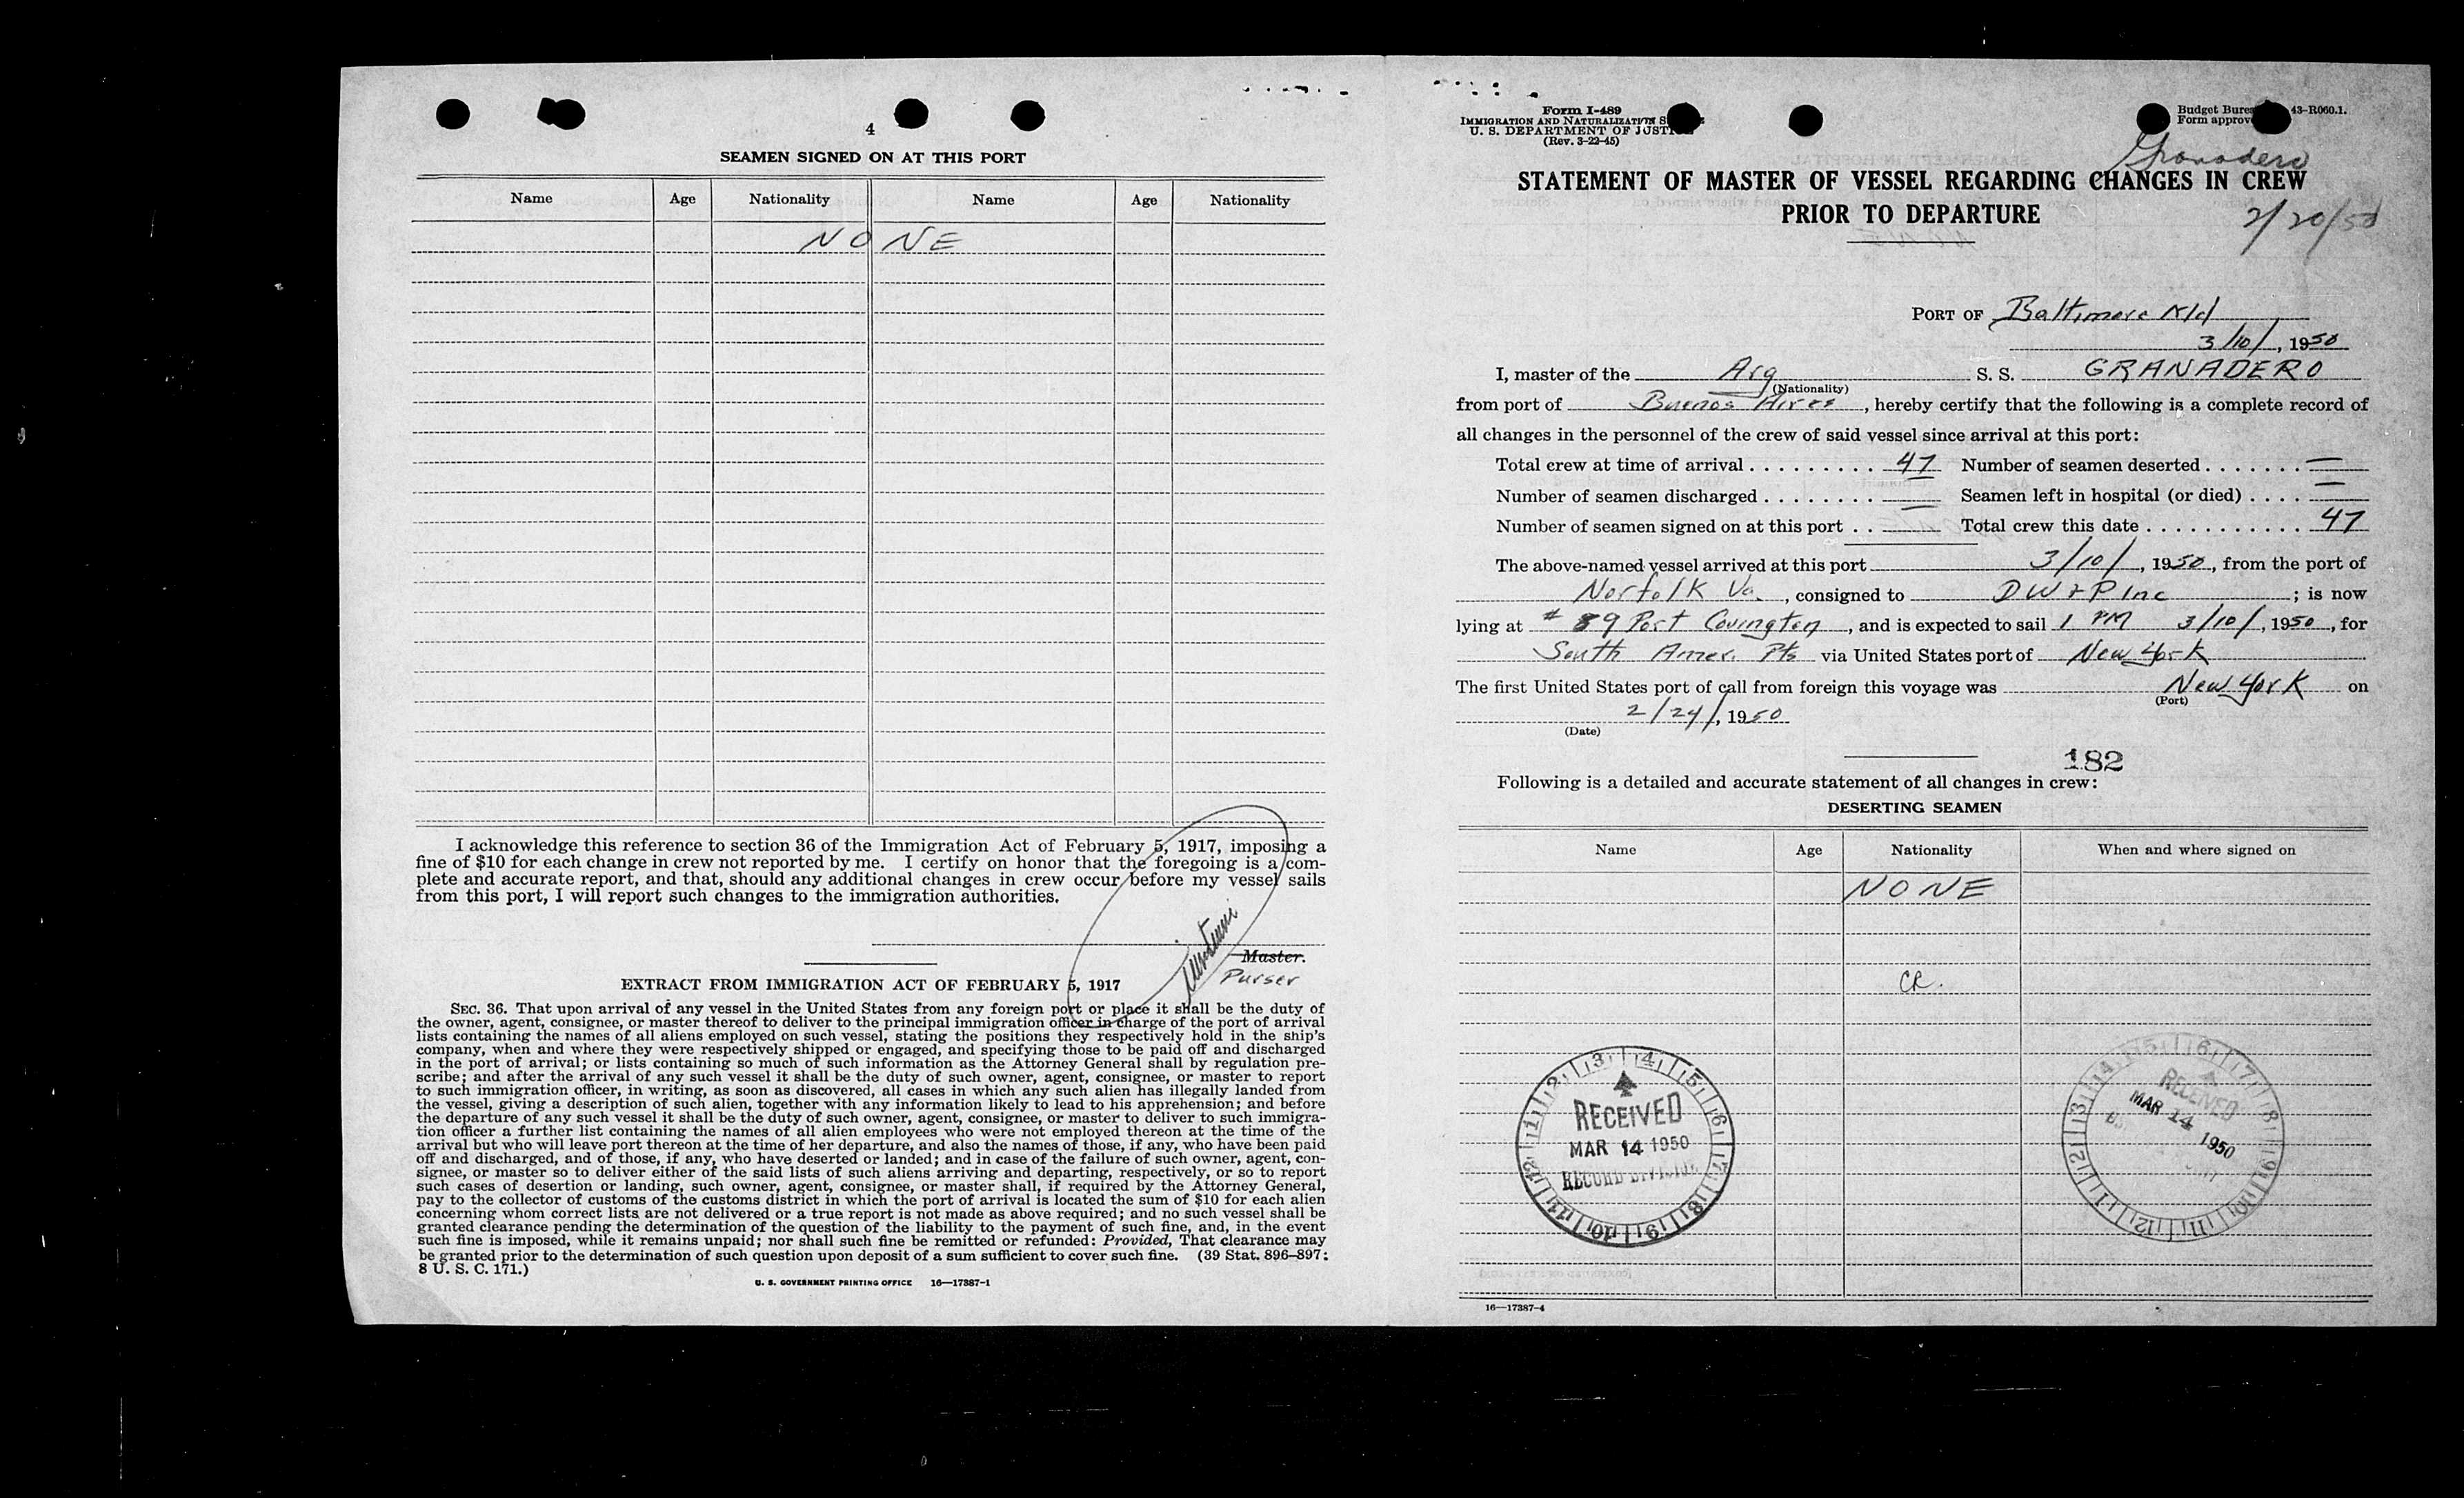 4
SEAMEN SIGNED ON AT THIS PORT
Name Age Nationality Name Age Nationality
NONE
I acknowledge this reference to section 36 of the Immigration Act of February 5, 1917, imposing a
fine of $10 for each change in crew not reported by me. I certify on honor that the foregoing is a com-
plete and accurate report, and that, should any additional changes in crew occur before my vessel sails
from this port, I will report such changes to the immigration authorities.
Master.
Purser
EXTRACT FROM IMMIGRATION ACT OF FEBRUARY 5, 1917
SEC. 36. That upon arrival of any vessel in the United States from any foreign port or place it shall be the duty of
the owner, agent, consignee, or master thereof to deliver to the principal immigration officer in charge of the port of arrival
lists containing the names of all aliens employed on such vessel, stating the positions they respectively hold in the ship's
company, when and where they were respectively shipped or engaged, and specifying those to be paid off and discharged
in the port of arrival; or lists containing so much of such information as the Attorney General shall by regulation pre-
scribe; and after the arrival of any such vessel it shall be the duty of such owner, agent, consignee, or master to report
to such immigration officer, in writing, as soon as discovered, all cases in which any such alien has illegally landed from
the vessel, giving a description of such alien, together with any information likely to lead to his apprehension; and before
the departure of any such vessel it shall be the duty of such owner, agent, consignee, or master to deliver to such immigra-
tion officer a further list containing the names of all alien employees who were not employed thereon at the time of the
arrival but who will leave port thereon at the time of her departure, and also the names of those, if any, who have been paid
off and discharged, and of those, if any, who have deserted or landed; and in case of the failure of such owner, agent, con-
signee, or master so to deliver either of the said lists of such aliens arriving and departing, respectively, or so to report
such cases of desertion or landing, such owner, agent, consignee, or master shall, if required by the Attorney General,
pay to the collector of customs of the customs district in which the port of arrival is located the sum of $10 for each alien
concerning whom correct lists are not delivered or a true report is not made as above required; and no such vessel shall be
granted clearance pending the determination of the question of the liability to the payment of such fine, and, in the event
such fine is imposed, while it remains unpaid; nor shall such fine be remitted or refunded: Provided, That clearance may
be granted prior to the determination of such question upon deposit of a sum sufficient to cover such fine. (39 Stat. 896–897;
8 U. S. C. 171.)
U. S. GOVERNMENT PRINTING OFFICE 16—17387-1
Form I-489
IMMIGRATION AND NATURALIZATION
U. S. DEPARTMENT OF JUSTICE
(Rev. 3-22-45)
Budget Bureau 43-R060.1.
Form approved
Granadero
STATEMENT OF MASTER OF VESSEL REGARDING CHANGES IN CREW
PRIOR TO DEPARTURE
2/20/50
PORT OF Baltimore Md
3/10/, 1950
I, master of the Arg S. S. GRANADERO
(Nationality)
from port of Buenos Aires, hereby certify that the following is a complete record of
all changes in the personnel of the crew of said vessel since arrival at this port:
Total crew at time of arrival 47 Number of seamen deserted —
Number of seamen discharged — Seamen left in hospital (or died) —
Number of seamen signed on at this port — Total crew this date 47
The above-named vessel arrived at this port 3/10/, 1950, from the port of
Norfolk Va., consigned to DW & P Inc; is now
lying at # 89 Port Covington, and is expected to sail 1 PM 3/10/, 1950, for
South Amer. Pts via United States port of New York
The first United States port of call from foreign this voyage was New York on
(Port)
2/24/, 1950
(Date)
182
Following is a detailed and accurate statement of all changes in crew:
DESERTING SEAMEN
Name Age Nationality When and where signed on
NONE
CR.
RECEIVED
MAR 14 1950
RECORD DIVISION
RECEIVED
MAR 14 1950
16—17387-4